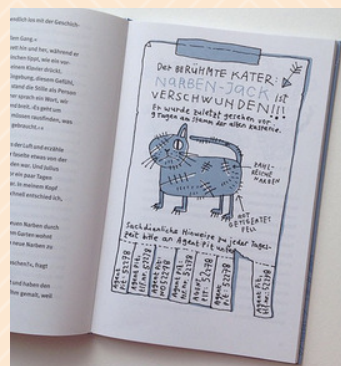 endlich los mit der Geschich-
den Gang.«
ett hin und her, während er
schen tippt, wie ein vor-
einen Klavier drückt.
ngebung, diesem Gefühl,
stand die Stille als Person
er sprach ein Wort, wo
nd breit. ›Es geht um
müssen rausfinden, was
gebraucht.‹«
n der Luft und erzählte
r faselte etwas von der
den war. Und Julius
er ein paar Tagen
mal. In meinem Kopf
chnell entschied ich,
euen Narben durch
m Garten wohnt
neue Narben zu
rechen?«, fragt
t und haben den
hn gemalt, weil
DER BERÜHMTE KATER:
NARBEN-JACK ist
VERSCHWUNDEN!!!
Er wurde zuletzt gesehen vor
3 Tagen am Stamm der alten Kastanie.
ZAHL-
REICHE
NARBEN
ROT
GETIGERTES
FELL
Sachdienliche Hinweise zu jeder Tages-
zeit bitte an Agent Pit unter:
Agent Pit:
52278
Agent Pit:
Agent Pit:
52278
Agent Pit:
52278
Agent Pit:
52278